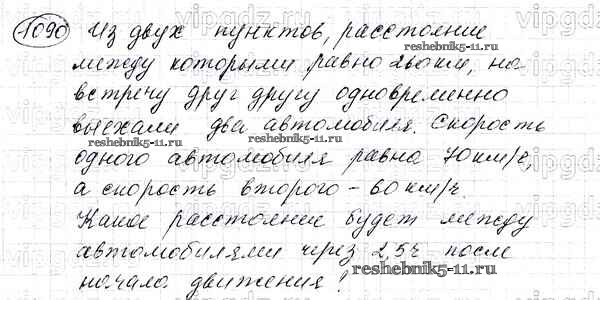 1090 Из двух пунктов, расстояние
между которыми равно 260 км, на
встречу друг другу одновременно
выехали два автомобиля. Скорость
одного автомобиля равна 70 км/ч,
а скорость второго – 60 км/ч.
Какое расстояние будет между
автомобилями через 2,5 ч после
начала движения?
reshebnik5-11.ru
reshebnik5-11.ru
reshebnik5-11.ru
reshebnik5-11.ru
vipgdz